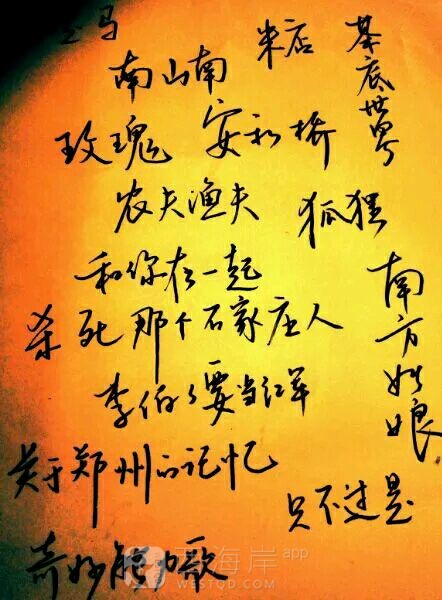 马
南山南
米店
底世界
玫瑰 安和桥
农夫渔夫
狐狸
和你在一起
杀死那个石家庄人
南方姑娘
李伯々要当红军
关于郑州的记忆
只不过是
奇妙能力歌
海岸app
WESTQD.COM